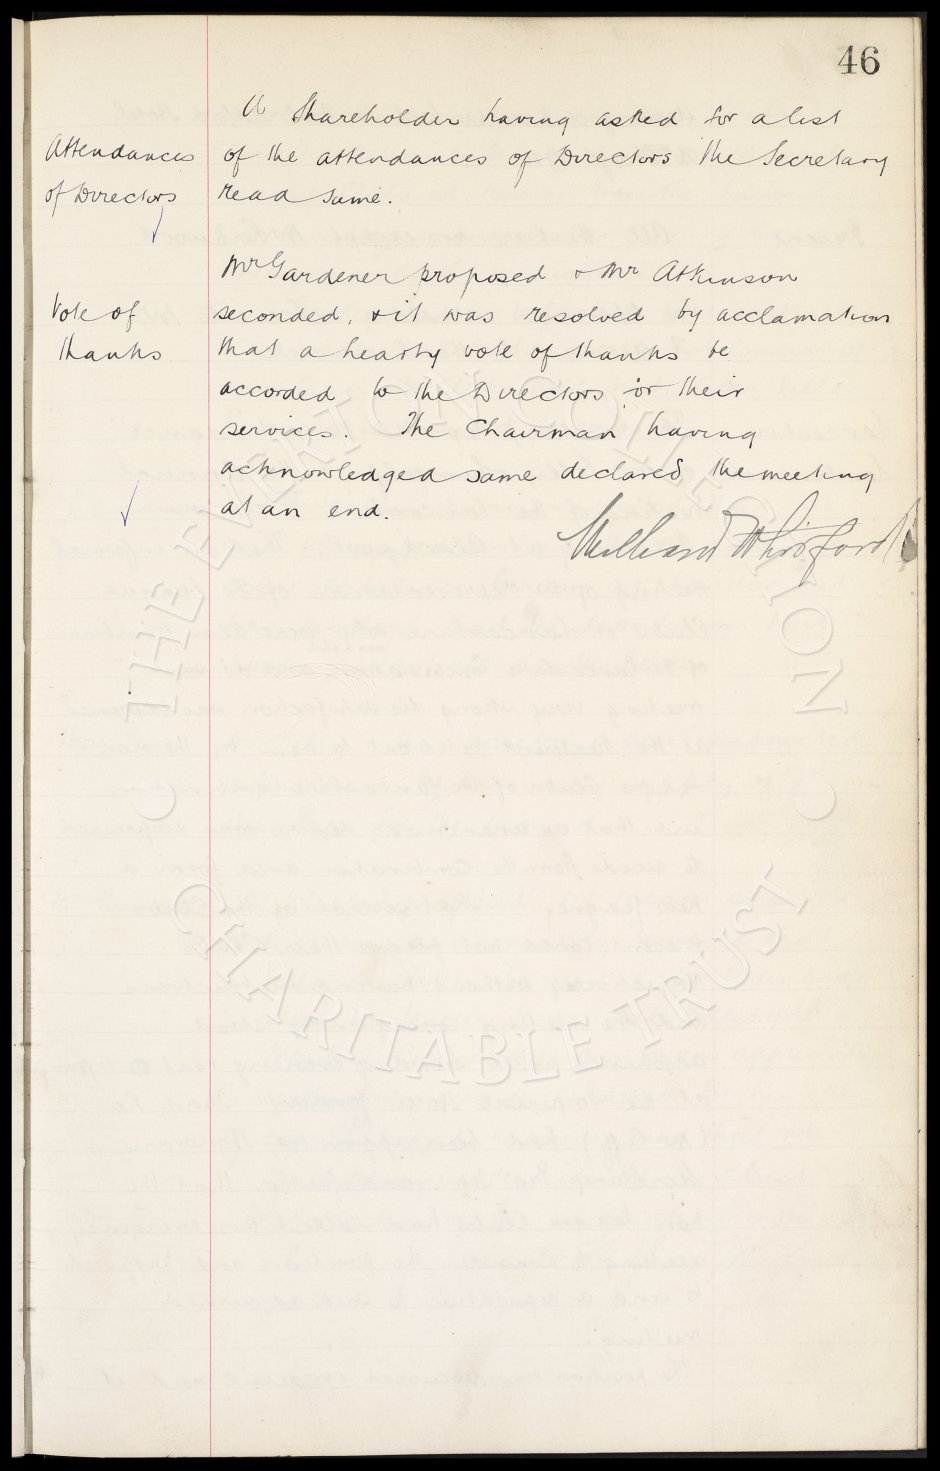 46
A Shareholder having asked for a list
Attendances
of the attendances of Directors the Secretary
of Directors
read same.
Mr Gardener proposed & Mr Atkinson
Vote of
seconded, & it was resolved by acclamation
thanks
that a hearty vote of thanks be
accorded to the Directors for their
services. The Chairman having
acknowledged same declared the meeting
at an end.
THE EVERTON COLLECTION
CHARITABLE TRUST